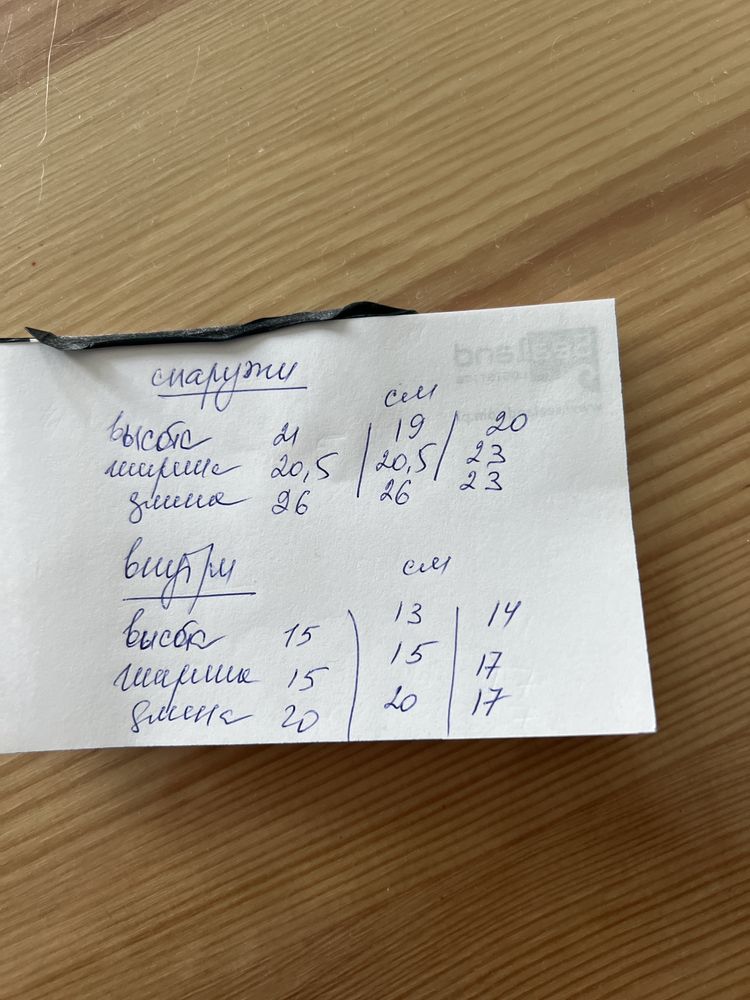 снаружи
см
высота 21 | 19 | 20
ширина 20,5 | 20,5 | 23
длина 26 | 26 | 23
внутри см
высота 15 | 13 | 14
ширина 15 | 15 | 17
длина 20 | 20 | 17